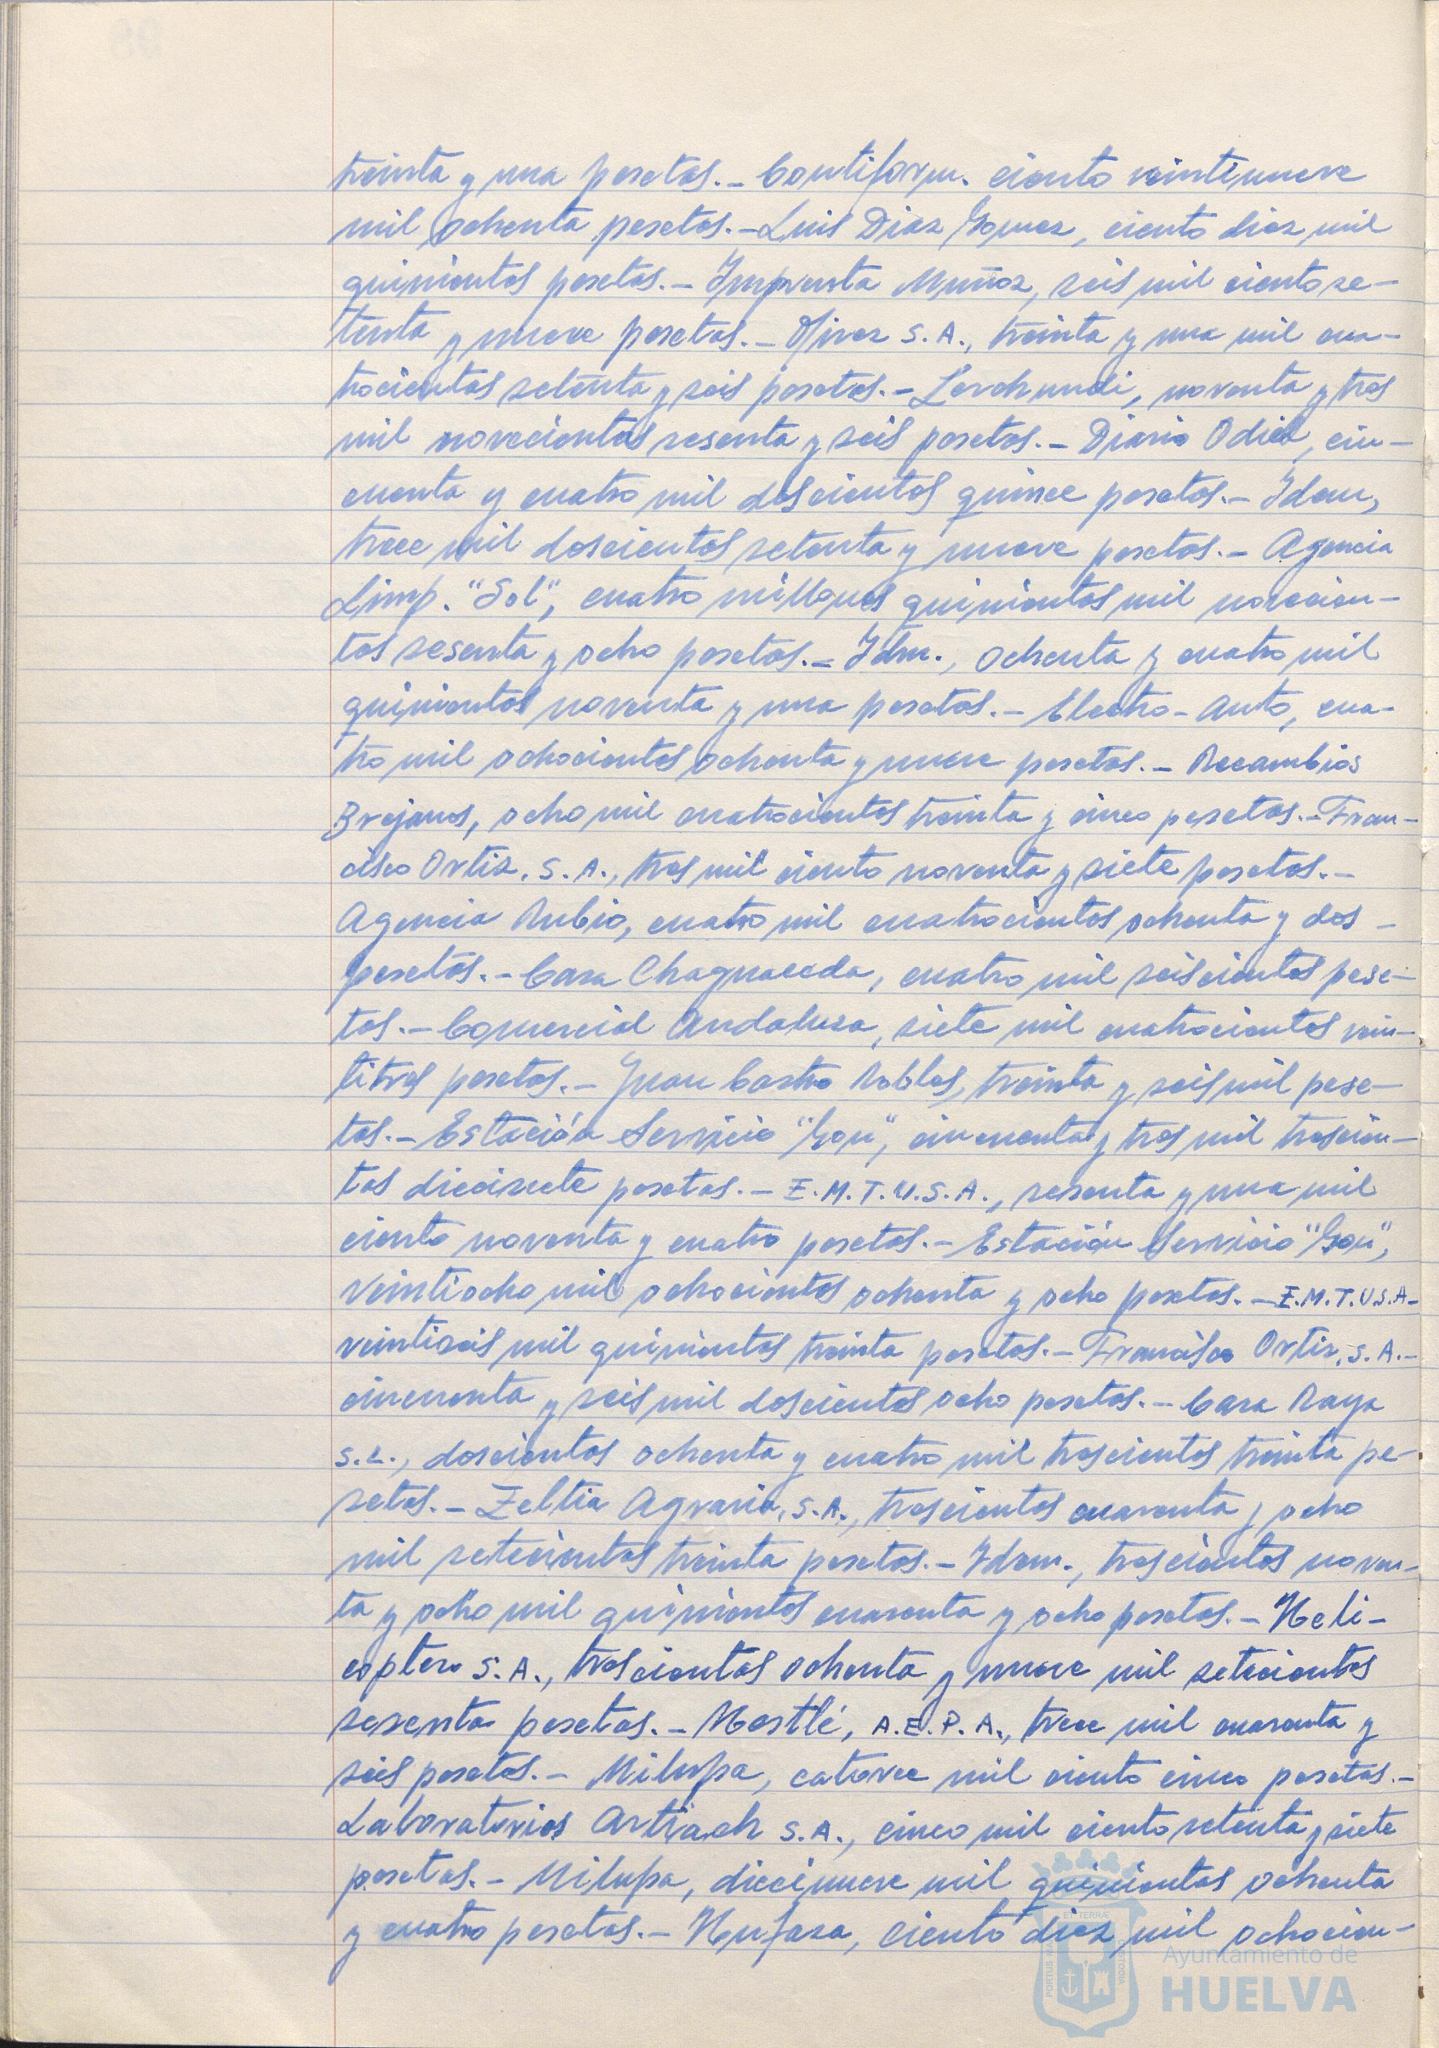 treinta y una pesetas.- Contiform. ciento veintinueve
mil ochenta pesetas.- Luis Diaz Gomez, ciento diez mil
quinientas pesetas.- Imprenta Muñoz, seis mil ciento se-
tenta y nueve pesetas.- S.A., treinta y una mil cua-
trocientas setenta y seis pesetas.- Lerchundi, noventa y tres
mil novecientas sesenta y seis pesetas.- Diario Odiel, cin-
cuenta y cuatro mil doscientas quince pesetas.- Idem,
trece mil doscientas setenta y nueve pesetas.- Agencia
Limp. "Sol", cuatro millones quinientas mil novecien-
tas sesenta y ocho pesetas.- Idm., ochenta y cuatro mil
quinientas noventa y una pesetas.- Electro-Auto, cua-
tro mil ochocientas ochenta y nueve pesetas.- Recambios
Brejanos, ocho mil cuatrocientas treinta y cinco pesetas.- Fran-
cisco Ortiz, S.A., tres mil ciento noventa y siete pesetas.-
Agencia Rubio, cuatro mil cuatrocientas ochenta y dos -
pesetas.- Casa Chaguaceda, cuatro mil seiscientas pese-
tas.- Comercial Andaluza, siete mil cuatrocientas vein-
titres pesetas.- Juan Castro Robles, treinta y seis mil pese-
tas.- Estación Servicio "Gou", cincuenta y tres mil trescien-
tas diecisiete pesetas.- E.M.T.U.S.A., sesenta y una mil
ciento noventa y cuatro pesetas.- Estación Servicio "Gou",
veintiocho mil ochocientas ochenta y ocho pesetas.- E.M.T.U.S.A-
veintiseis mil quinientas treinta pesetas.- Francisco Ortiz, S.A.-
cincuenta y seis mil doscientas ocho pesetas.- Casa Raya
S.L., doscientas ochenta y cuatro mil trescientas treinta pe-
setas.- Zeltia Agraria, S.A., trescientas cuarenta y ocho
mil setecientas treinta pesetas.- Idem., trescientas noven-
ta y ocho mil quinientas cuarenta y ocho pesetas.- Heli-
coptero S.A., trescientas ochenta y nueve mil setecientas
sesenta pesetas.- Nestlé, A.E.P.A., trece mil cuarenta y
seis pesetas.- Milupa, catorce mil ciento cinco pesetas.-
Laboratorios Artiach S.A., cinco mil ciento setenta y siete
pesetas.- Milupa, diecinueve mil quinientas ochenta
y cuatro pesetas.- Hufasa, ciento diez mil ochocien-
Ayuntamiento de
HUELVA